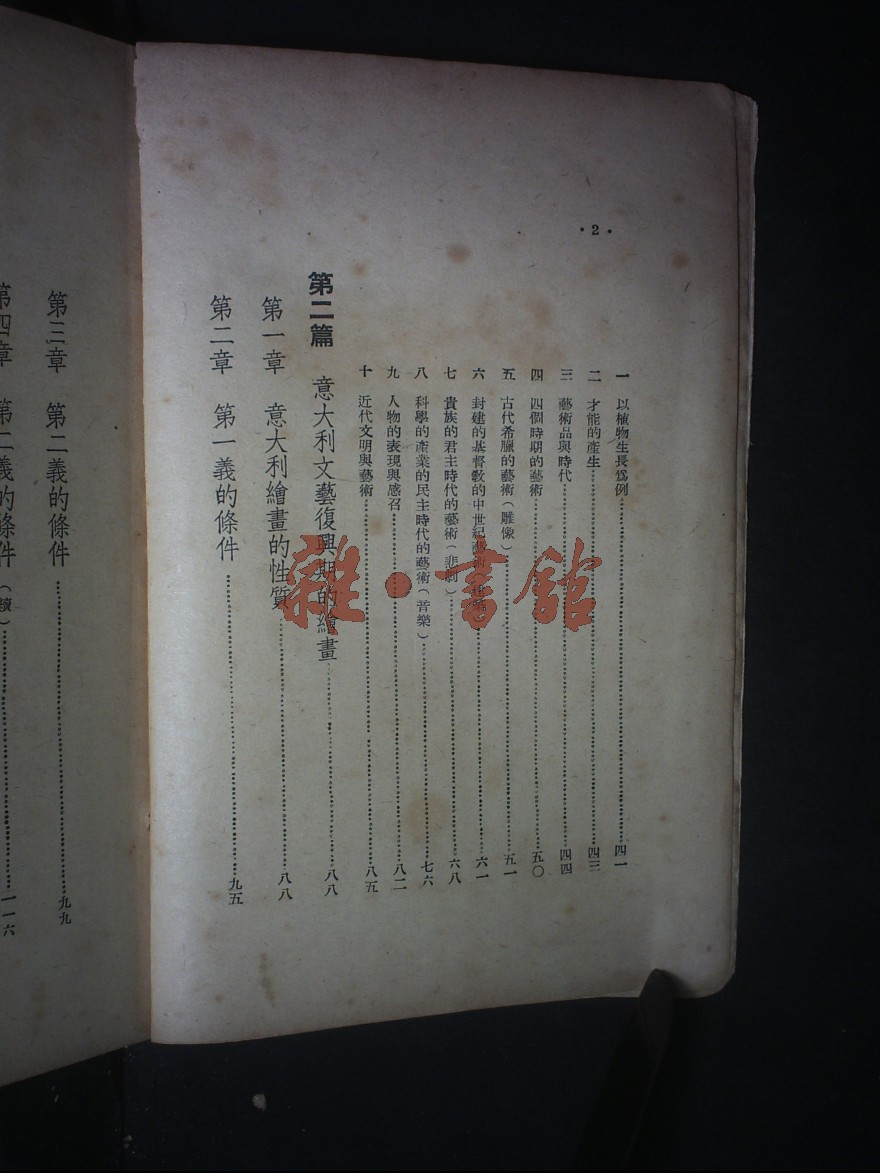 ·2·
一 以植物生長爲例 四一
二 才能的產生 四三
三 藝術品與時代 四四
四 四個時期的藝術 五〇
五 古代希臘的藝術（雕像） 五一
六 封建的基督敎的中世紀藝術（建築） 六一
七 貴族的君主時代的藝術（悲劇） 六八
八 科學的產業的民主時代的藝術（音樂） 七六
九 人物的表現與感召 八二
十 近代文明與藝術 八五
第二篇 意大利文藝復興期的繪畫 八八
第一章 意大利繪畫的性質 八八
第二章 第一義的條件 九五
第三章 第二義的條件 九九
第四章 第二義的條件（續） 一一六
雜·書館